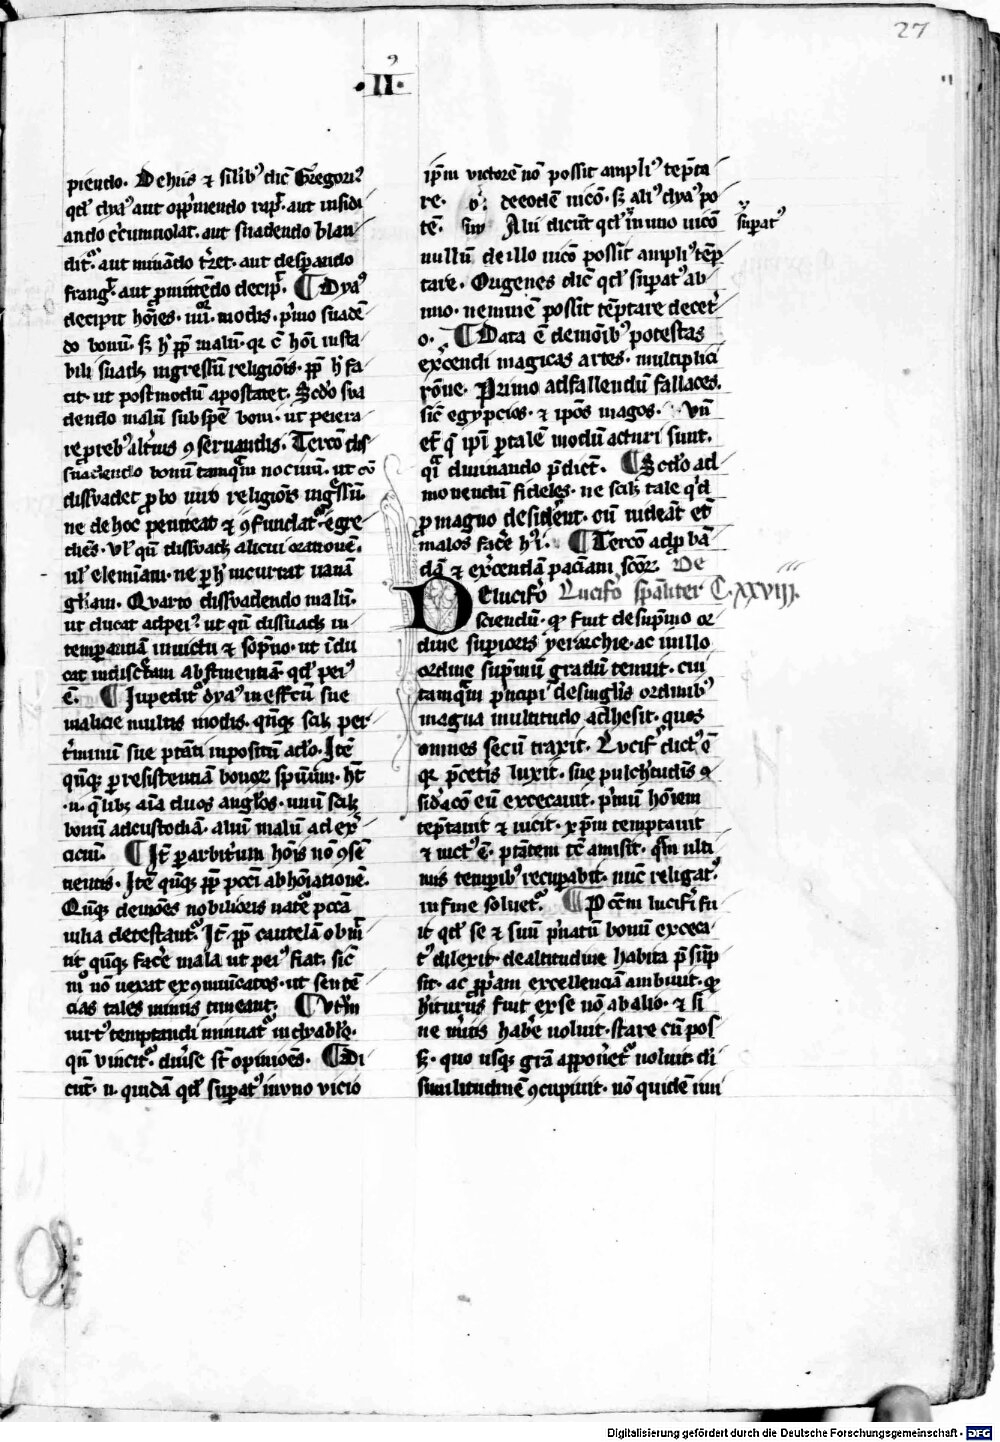 27
·II·
piendo. De hiis ⁊ silibꝰ dic̄ Gregoriꝰ
qd' dyaꝰ aut opp̄mendo rap̄. aut insidi
ando c̄cumuolat. aut suadendo blan
dit᷑. aut minādo t̄ret. aut despando
frang᷑. aut ꝓmittēdo decip᷑. ¶ Dyaꝰ
decipit hōīes. iiii. modis. pͥmo suadē
do bonū. sꝫ h' ꝓp̄ malū. qꝛ ē hōi insta
bili suadꝫ ingressū religiōis. ꝓp̄ h' fa
cit. ut postmodū apostatet. Scd'o sua
dendo malū sub spē boni. ut peiera
re p̄ rebꝰ alt'ius ꝯseruandis. Tercō dis
suadendo bonū tamqͣm nociuū. ut cū
dissuadet ꝓbo uiro religiōis ingssū.
ne de hoc peniteat ⁊ ꝯfundat᷑ egre
diēs. ul' qn̄ dissuadꝫ alicui oratiōnē.
ul' elemīam. ne ꝑ h' incurrat uanā
gl'iam. Quarto dissuadendo malū.
ut ducat ad peiꝰ. ut qn̄ dissuadꝫ in
tempantiā in uictu ⁊ sōpno. ut īdu
cat indisc̄tam abstinentiā qd' peiꝰ
ē. ¶ Inpedit᷑ dyaꝰ in eff'cū sue
malicie multis modis. qn̄qꝫ scilꝫ per
t'minū sue ptāti inpositū a dō. Itē
qn̄qꝫ ꝑ resistentiā bonoꝝ spūum. hꝫ
.n. qͥlibꝫ aīa duos angl'os. unū scilꝫ
bonū ad custodiā. aliū malū ad ex̄
ciciū. ¶ It̄ ꝑ arbitrium hōis nō ꝯsē
tientis. Itē qn̄qꝫ ꝓp̄ pcc̄i abhōīationē.
Qn̄qꝫ demōēs nobilioris nate᷑ pccā
uilia detestant᷑. It̄ ꝓp̄ cautelā obmͥt
tit qn̄qꝫ fac'e mala ut peiꝰ fiat. sic̄
mͦ nō uexat exꝯmūicatos. ut sentē
cias tales minus timeant. ¶ Vtͬm
uirtꝰ temptandi minuat᷑ in dyablo.
qn̄ vincit᷑. diu'se st̄ opiniōēs. ¶ Di
cūt. n. quidā qd' supatꝰ in vno vicio
ip̄m victorē nō possit ampliꝰ tēp̄ta
re. de eodē uicō. sꝫ aliꝰ dyaꝰ po
tē. Alii dicūt qd' in uno uicō
supatꝰ
nullū de illo uicō possit ampliꝰ tēp̄
tare. Origenes dic̄ qd' supatꝰ ab
uno. neminē possit tēptare de cet'
o. ¶ Data ē demōibꝰ potestas
ex'cendi magicas artes. multiplici
rōne. Primo ad fallendū fallaces.
sic̄ egypcios. ⁊ ip̄os magos. vn̄
et̄ qͥ ip̄i ꝑ talē modū acturi sunt.
qͥ diuinando p̄dict̄. ¶ Scd'o ad
monendū fideles. ne scilꝫ tale qͥd
ꝓ magno desid'ent. cū uideāt et̄
malos fac'e h'i. ¶ Tercō ad ꝓbā
dā ⁊ ex'cendā paciam scōꝝ. De
De lucif'o Lucif'o spāliter C. xxviii.
sciendū. qꝫ fuit de supͥmo or
dine supioris yerarchie. ac in illo
ordine supͥmū gradū tenuit. cui
tamqͣm pͥncipi de singl'is ordinibꝰ
magna multitudo adhesit. quos
omnes secū traxit. Lucif' dictꝰ ē
qꝛ p̄cet'is luxit. sue pulch'tudīs ꝯ
sid'acō eū excecauit. pͥmū hōīem
tēptauit ⁊ uicit. xp̄m temptauit
⁊ uictꝰ ē. ptātem tc̄ amisit. qͣm ulti
mis tempibꝰ recupabit. nūc religat᷑.
in fine soluet᷑. ¶ Pcc̄m lucif'i fu
it qd' se ⁊ suū pͥuatū bonū exceca
tꝰ dilexit. de altitudine habita p̄sūp
sit. ac ꝓp̄am excellenciā ambiuit. qꝫ
h'iturus fuit ex se nō ab alio. ⁊ si
ne m'itis hab'e uoluit. stare cū pos
sꝫ. quo usqꝫ grā apponet᷑ noluit. di
similitudinē ꝯcupiuit. nō quidē imi
Digitalisierung gefördert durch die Deutsche Forschungsgemeinschaft - DFG